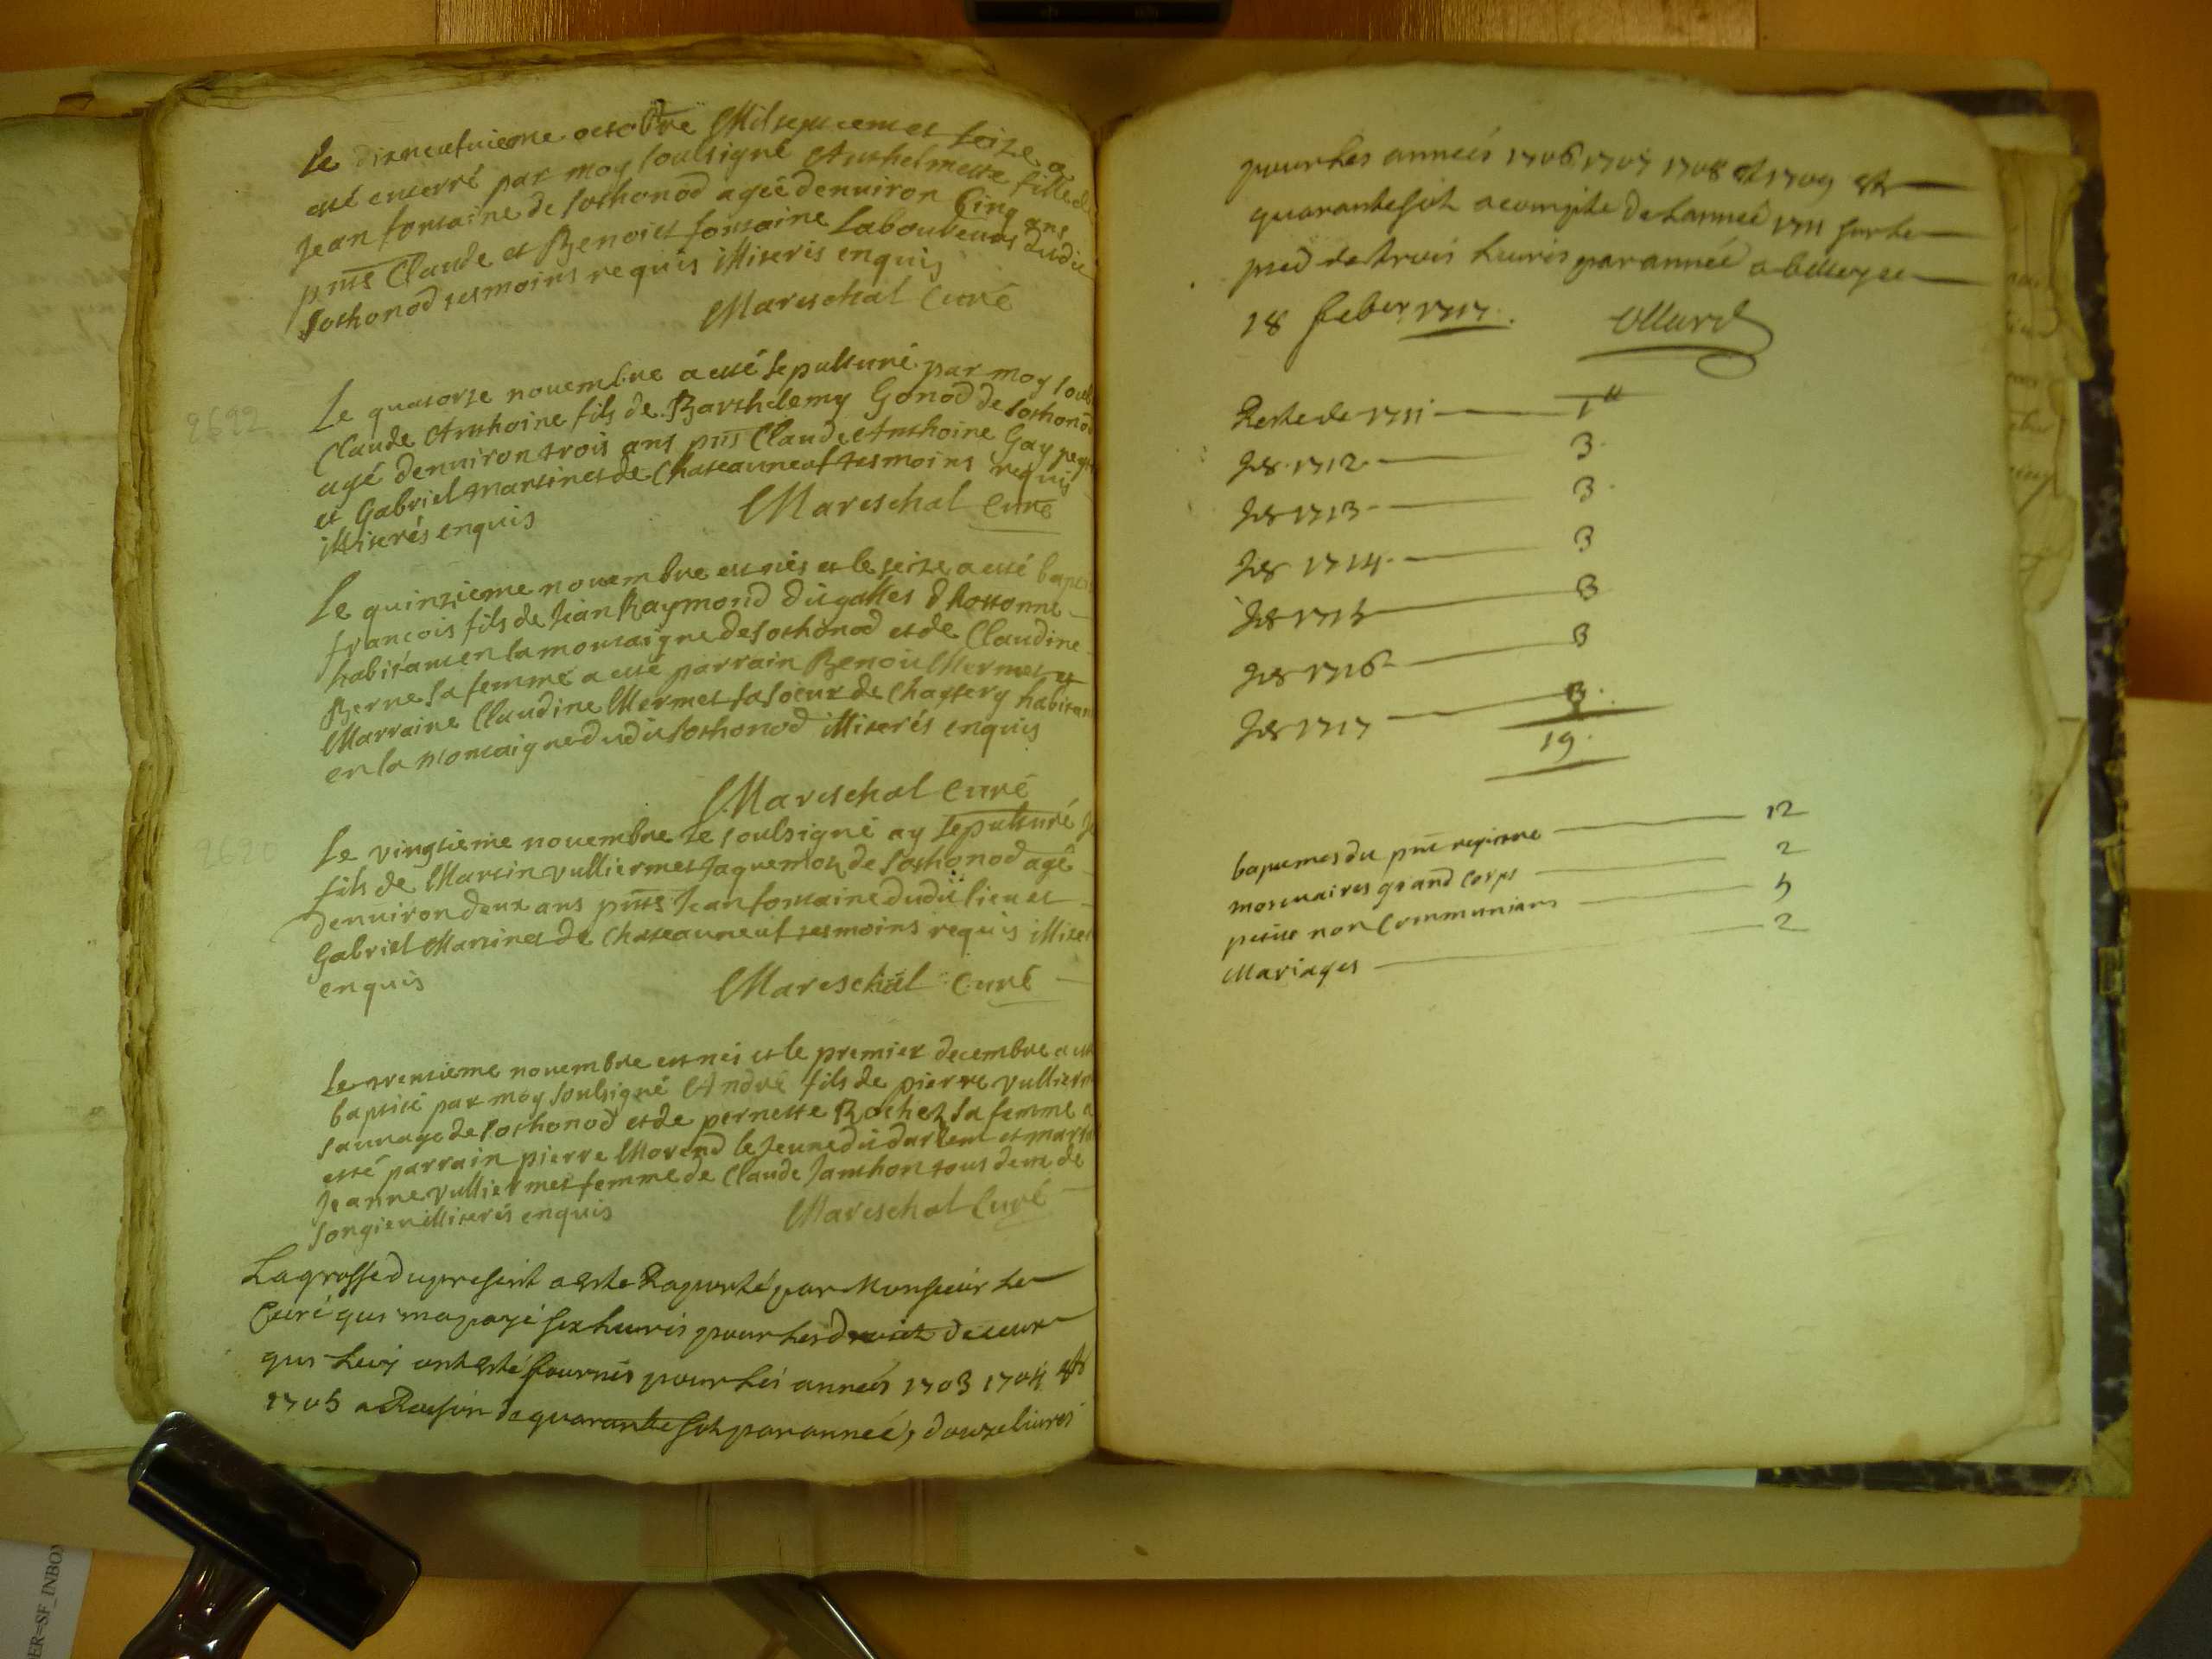 Le dixneufuieme octobre Mil sept cent et seize a
esté enterré par moy soubsigné Anthelmette fille de
Jean fontaine de sothonod agée denuiron Cinq ans
pnts Claude et Benoist fontaine Laboureurs dudit
sothonod tesmoins requis illiterés enquis
Mareschal Curé
2692
Le quatorze nouembre a esté sepulturé par moy soub
Claude Anthoine fils de Barthelemy Gonod de sothonod
agé denuiron trois ans pnts Claude Anthoine Gay
et Gabriel Martinet de Chateauneuf tesmoins requis
illiterés enquis
Mareschal Curé
Le quinzieme nouembre est nés et le seize a esté bapt
francois fils de Jean Raymond dugattes d hottonne
habitant en la montaigne de sothonod et de Claudine
Berne sa femme a esté parrain Benoit Mermet et
Marraine Claudine Mermet sa soeur de Chassery habitan
en la montaigne dudit sothonod illiterés enquis
Mareschal Curé
2690
Le vingtieme nouembre Je soubsigné ay sepulturé Je
fils de Martin vulliermet Jaquemot de sothonod agé
denuiron deux ans pnts Jean fontaine dudit lieu et
Gabriel Martinet de Chateauneuf tesmoins requis illiter
enquis
Mareschal Curé
Le trentieme nouembre est nés et le premier decembre a est
baptisé par moy soubsigné André fils de pierre vullierm
sauuage de sothonod et de pernette Rochet sa femme a
esté parrain pierre Morend le Jeune du et marra
Jeanne vulliermet femme de Claude Janthon tous deux de
songieu illiterés enquis
Mareschal Curé
La grosse du present a este Raporté par Monsieur le
Curé qui ma payé six liures pour les droict de ceux
qui luy ont esté fournis pour les années 1703 1704 et
1705 a Raison de quarante solz par année, douze liures
pour les années 1706 1707 1708 et 1709 et
quarante solz a compte de l année 1711 sur le
pied de trois liures par année a belley ce
18 feber 1717. Ollard
Reste de 1711 — 1 ll
Jes 1712 — 3
Jes 1713 — 3
Jes 1714 — 3
Jes 1715 — 3
Jes 1716 — 3
Jes 1717 — 3
19
baptemes du pnt registre — 12
mortuaires grand corps — 2
petits non Communians — 5
Mariages — 2
ER=SF_INBO